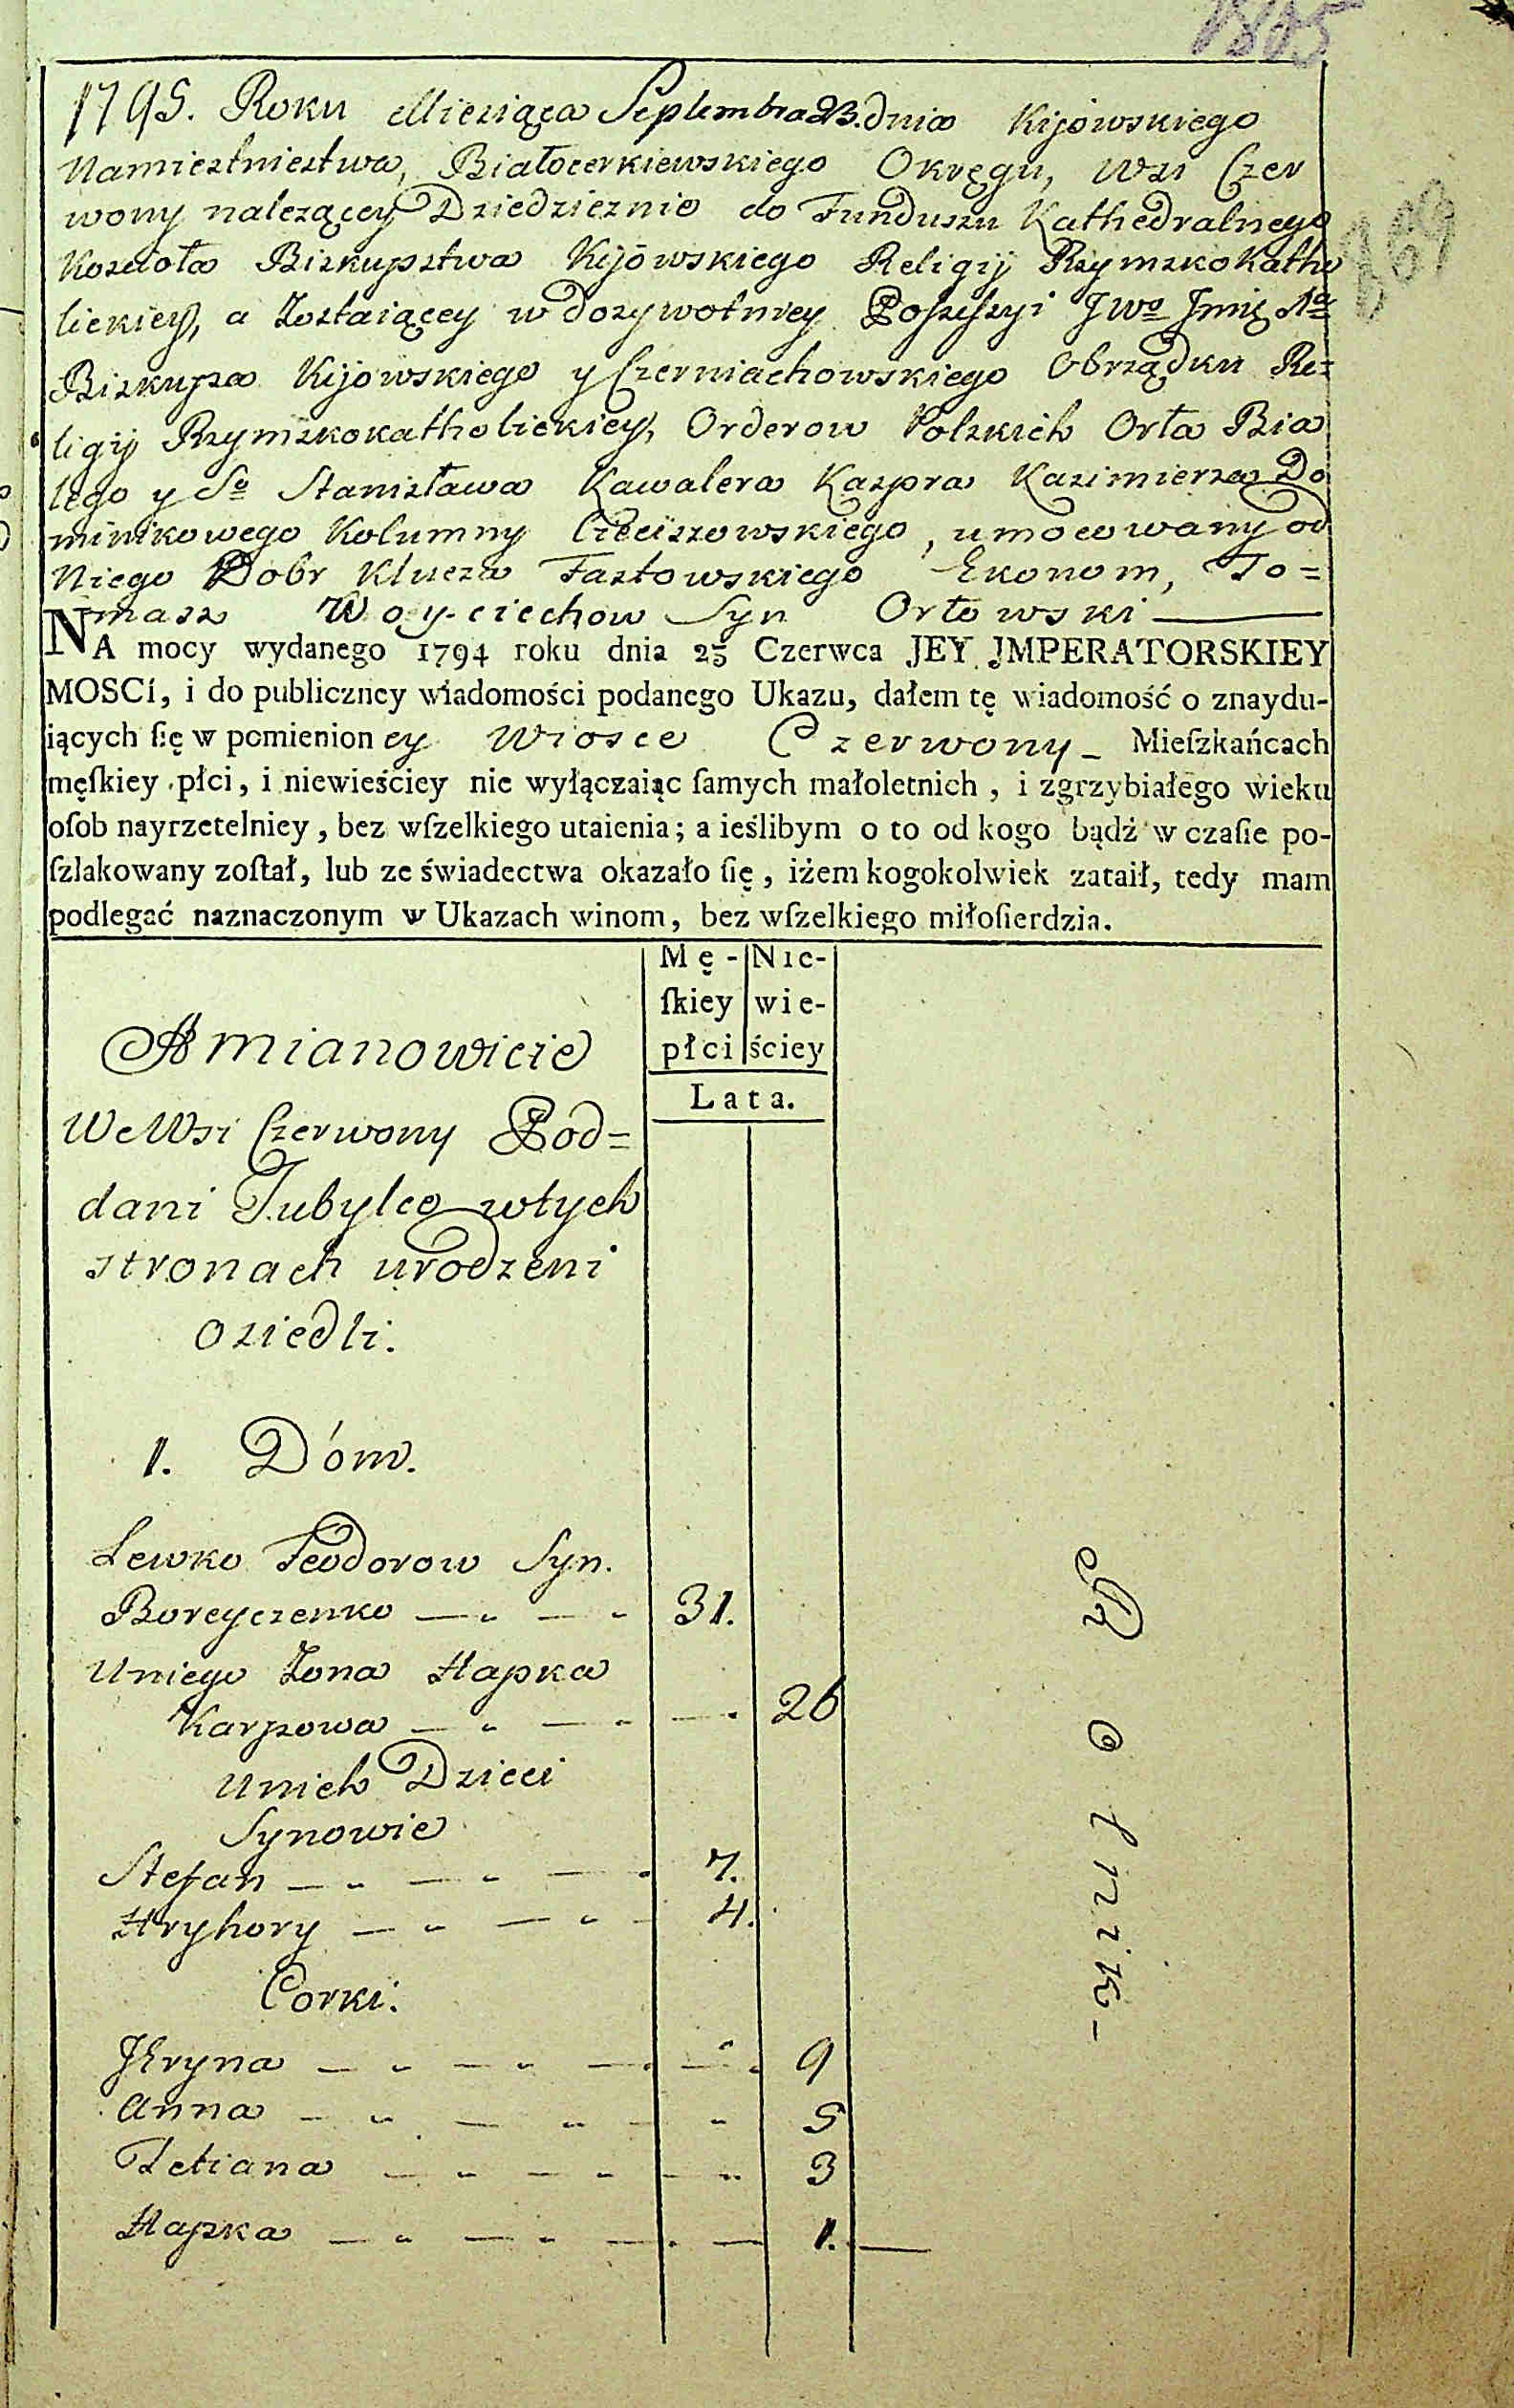 1795. Roku Miesiąca Septembra 23. dnia Kijowskiego
Namiestniestwa, Białocerkiewskiego Okręgu, Wsi Czer
wony nalezącey Dziedzicznie do Funduszu Kathedralnego
Koscioła Biskupstwa Kijowskiego Religij Rzymsko Katho
lickiey, a Zostaiącey w dozywotniey Possessyi JWo Jmię Xa
Biskupa Kijowskiego y Czerniachowskiego Obrządku Re=
ligij Rzymskokatholickiey, Orderow Polskich Orła Bia
łego y So Stanisława Kawalera Kaspra Kazimierza Do
minikowego Kolumny Cieciszowskiego, umocowany od
Niego Dobr Klucza Fastowskiego Ekonom, To=
masz Woyciechow Syn Orłowski
NA mocy wydanego 1794 roku dnia 25 Czerwca JEY JMPERATORSKIEY
MOSCİ, i do publiczney wiadomości podanego Ukazu, dałem tę wiadomość o znaydu-
iących ſię w pomienioney Wiosce Czerwony - Mieſzkańcach
męſkiey płci, i niewieściey nie wyłączaiąc ſamych małoletnich, i zgrzybiałego wieku
oſob nayrzetelniey, bez wſzelkiego utaienia; a ieślibym o to od kogo bądź w czaſie po-
ſzlakowany zoſtał, lub ze świadectwa okazało ſię, iżem kogokolwiek zataił, tedy mam
podlegać naznaczonym w Ukazach winom, bez wſzelkiego miłoſierdzia.
Mę- Nie-
ſkiey wie-
płci ściey
Lata.
A mianowicie
We Wsi Czerwony Pod=
dani Tubylce w tych
stronach urodzeni
osiedli.
1. Dóm.
Lewko Teodorow Syn.
Boreyczenko 31.
U niego Zona Hapka
Karpowa 26
U nich Dzieci
Synowie
Stefan 7.
Hryhory 4.
Corki.
Jkryna 9
Anna 5
Tetiana 3
Hapka 1.
Rolnik-